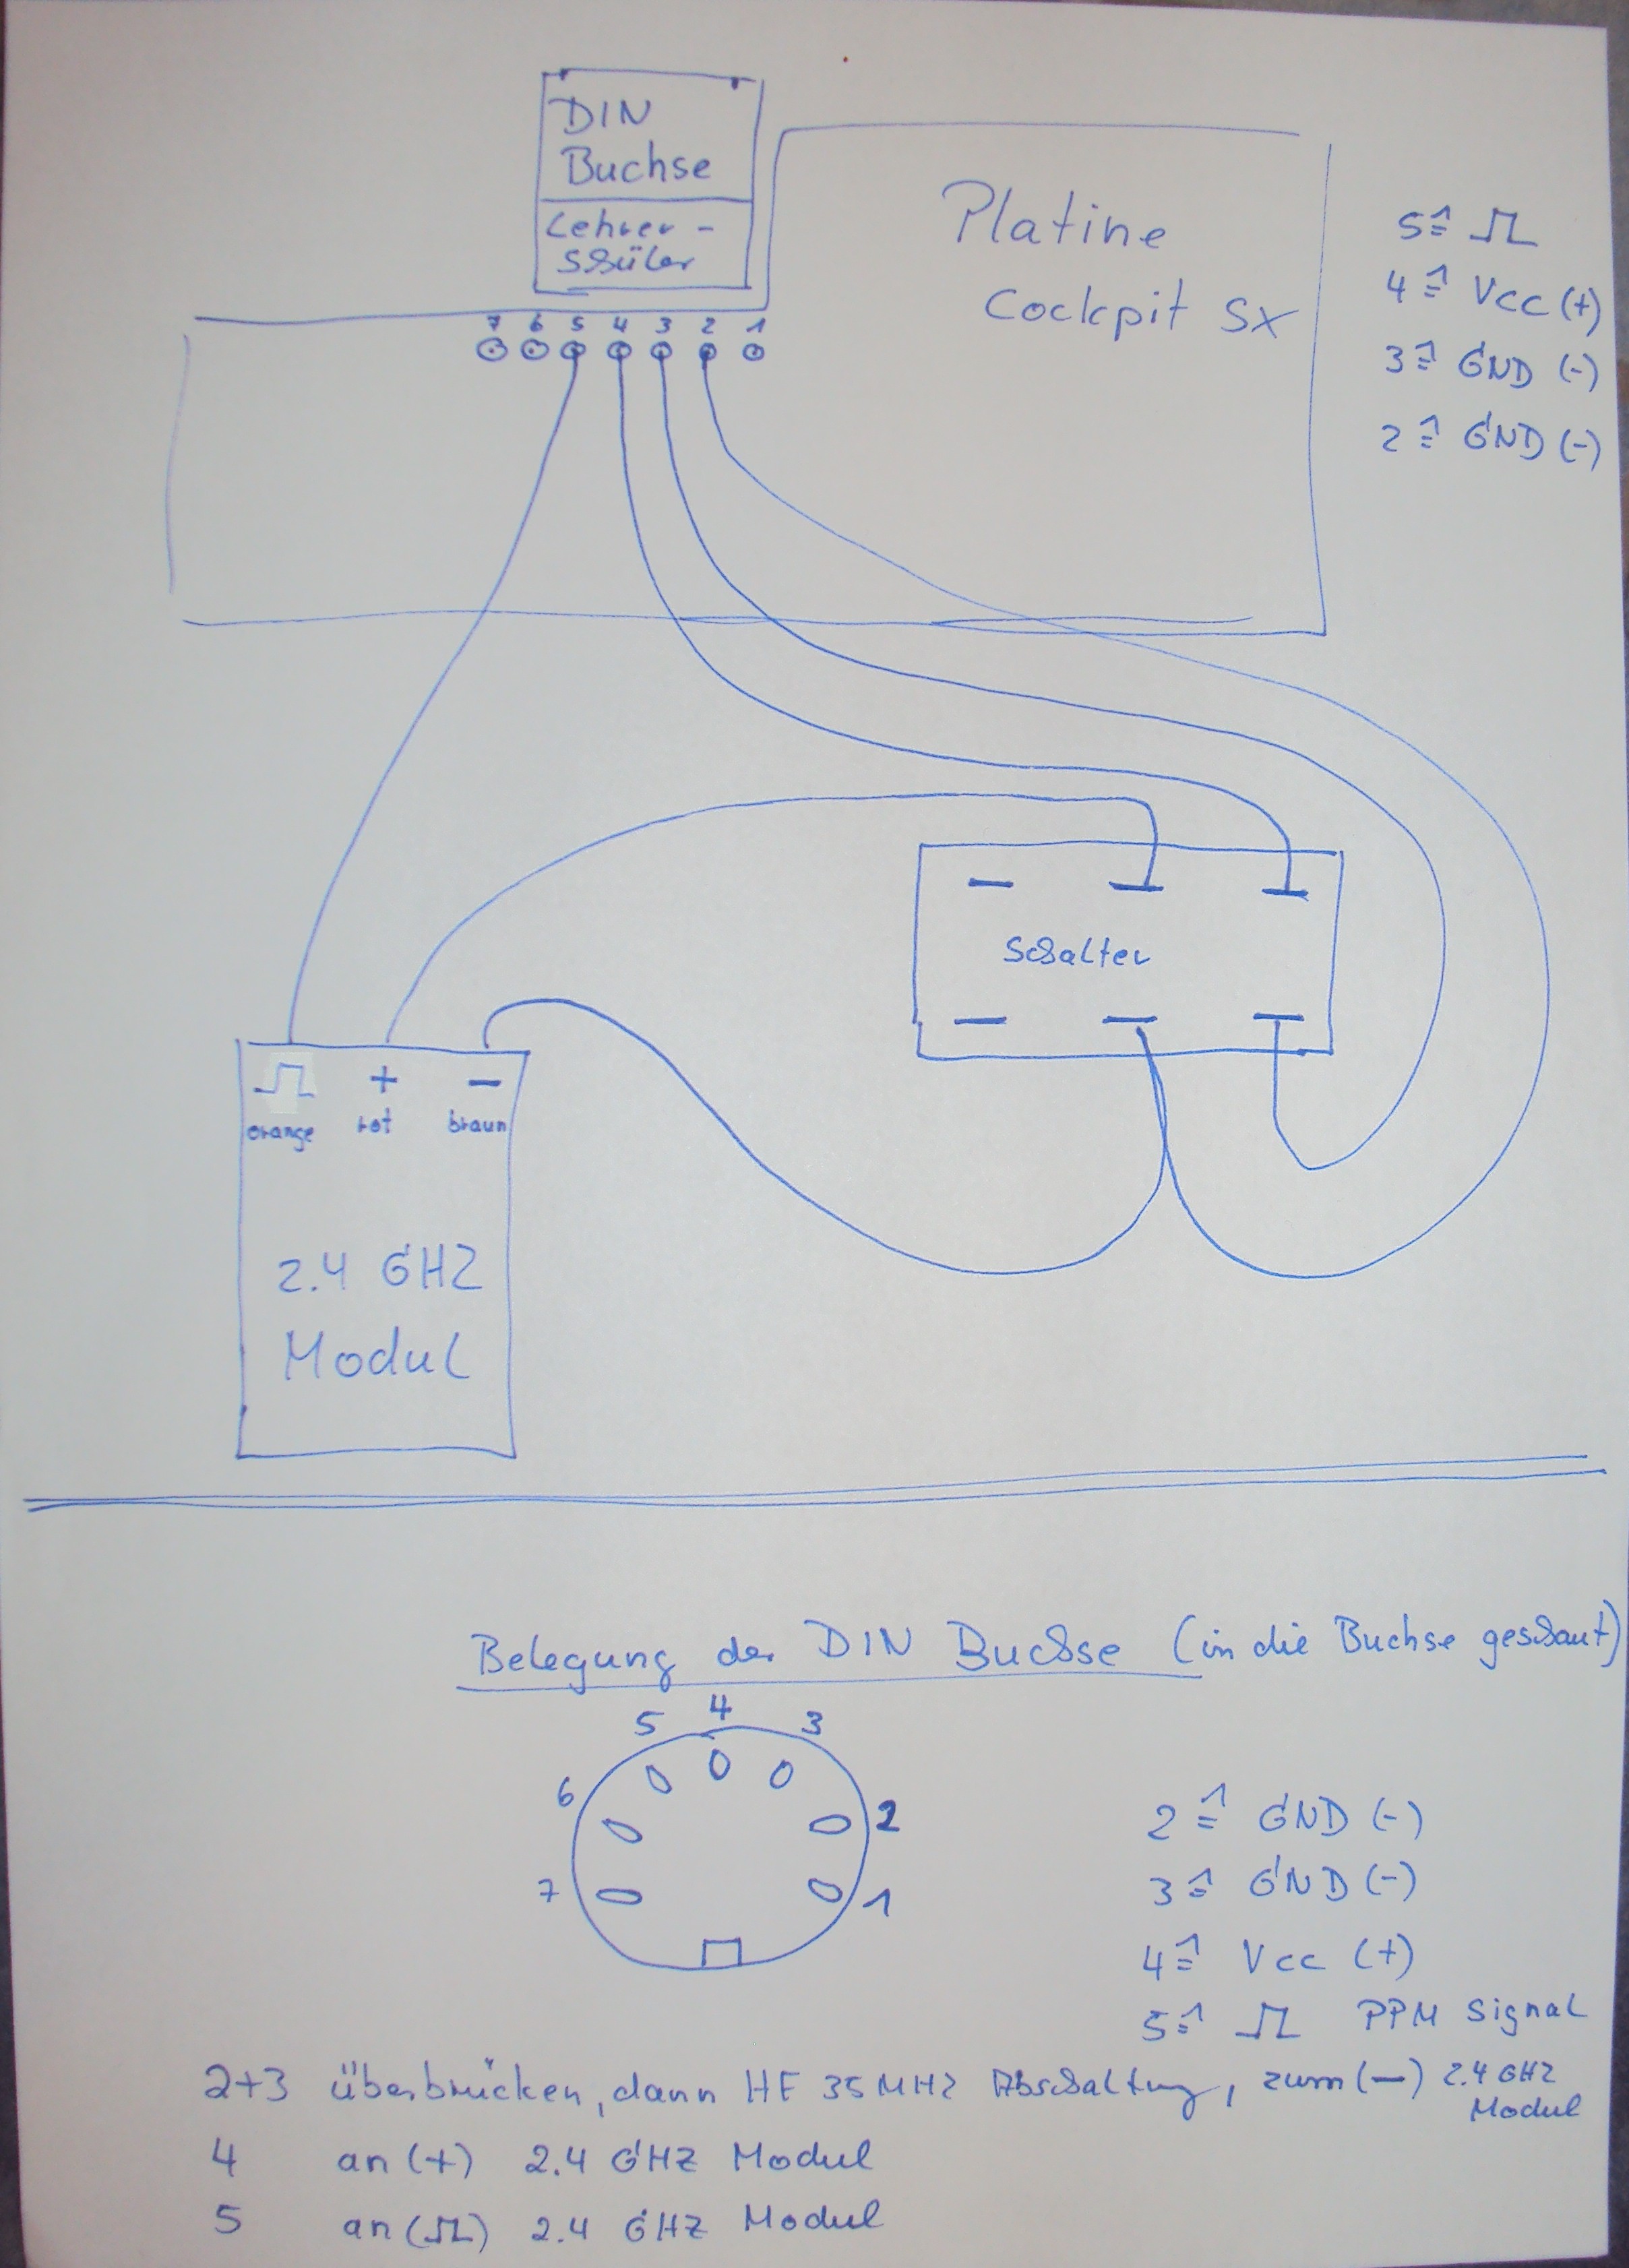 DIN
Buchse
Lehrer-
Schüler
Platine
Cockpit SX
5≙ ⎍
4≙ Vcc (+)
3≙ GND (-)
2≙ GND (-)
7 6 5 4 3 2 1
Schalter
⎍ + −
orange rot braun
2.4 GHZ
Modul
Belegung der DIN Buchse (in die Buchse geschaut)
5 4 3
6 2
7 1
2≙ GND (-)
3≙ GND (-)
4≙ Vcc (+)
5≙ ⎍ PPM Signal
2+3 überbrücken, dann HF 35MHZ Abschaltung, zum (−) 2.4 GHZ
Modul
4 an (+) 2.4 GHZ Modul
5 an (⎍) 2.4 GHZ Modul